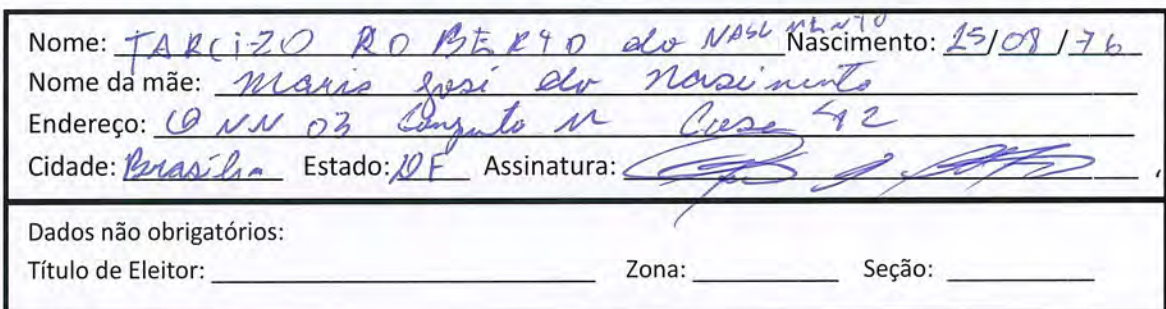 Nome: TARCiZO ROBERTO do NASCIMENTO Nascimento: 25/08/76
Nome da mãe: Maria José do Nascimento
Endereço: QNN 03 Conjunto M Casa 42
Cidade: Brasília Estado: DF Assinatura:
Dados não obrigatórios:
Título de Eleitor: Zona: Seção: